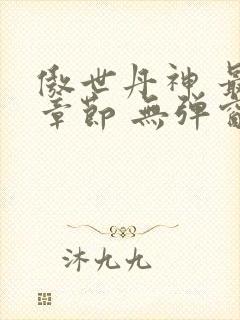 傲世丹神 最
章節 無彈窗
沐九九